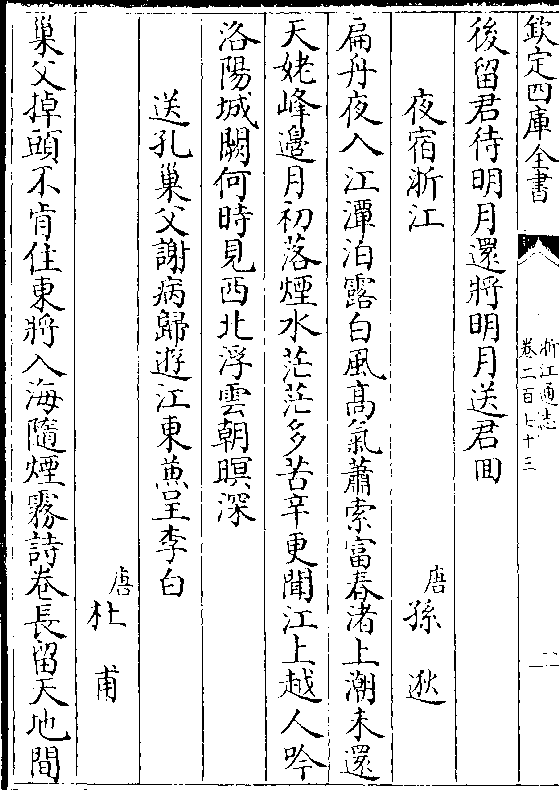 欽定四庫全書
浙江通志
卷二百七十三
二
後留君待明月還將明月送君回
夜宿浙江
唐 孫逖
扁舟夜入江潭泊露白風高氣蕭索富春渚上潮未還
天姥峰邊月初落煙水茫茫多苦辛更聞江上越人吟
洛陽城闕何時見西北浮雲朝暝深
送孔巢父謝病歸遊江東兼呈李白
唐 杜甫
巢父掉頭不肯住東將入海隨煙霧詩卷長留天地間